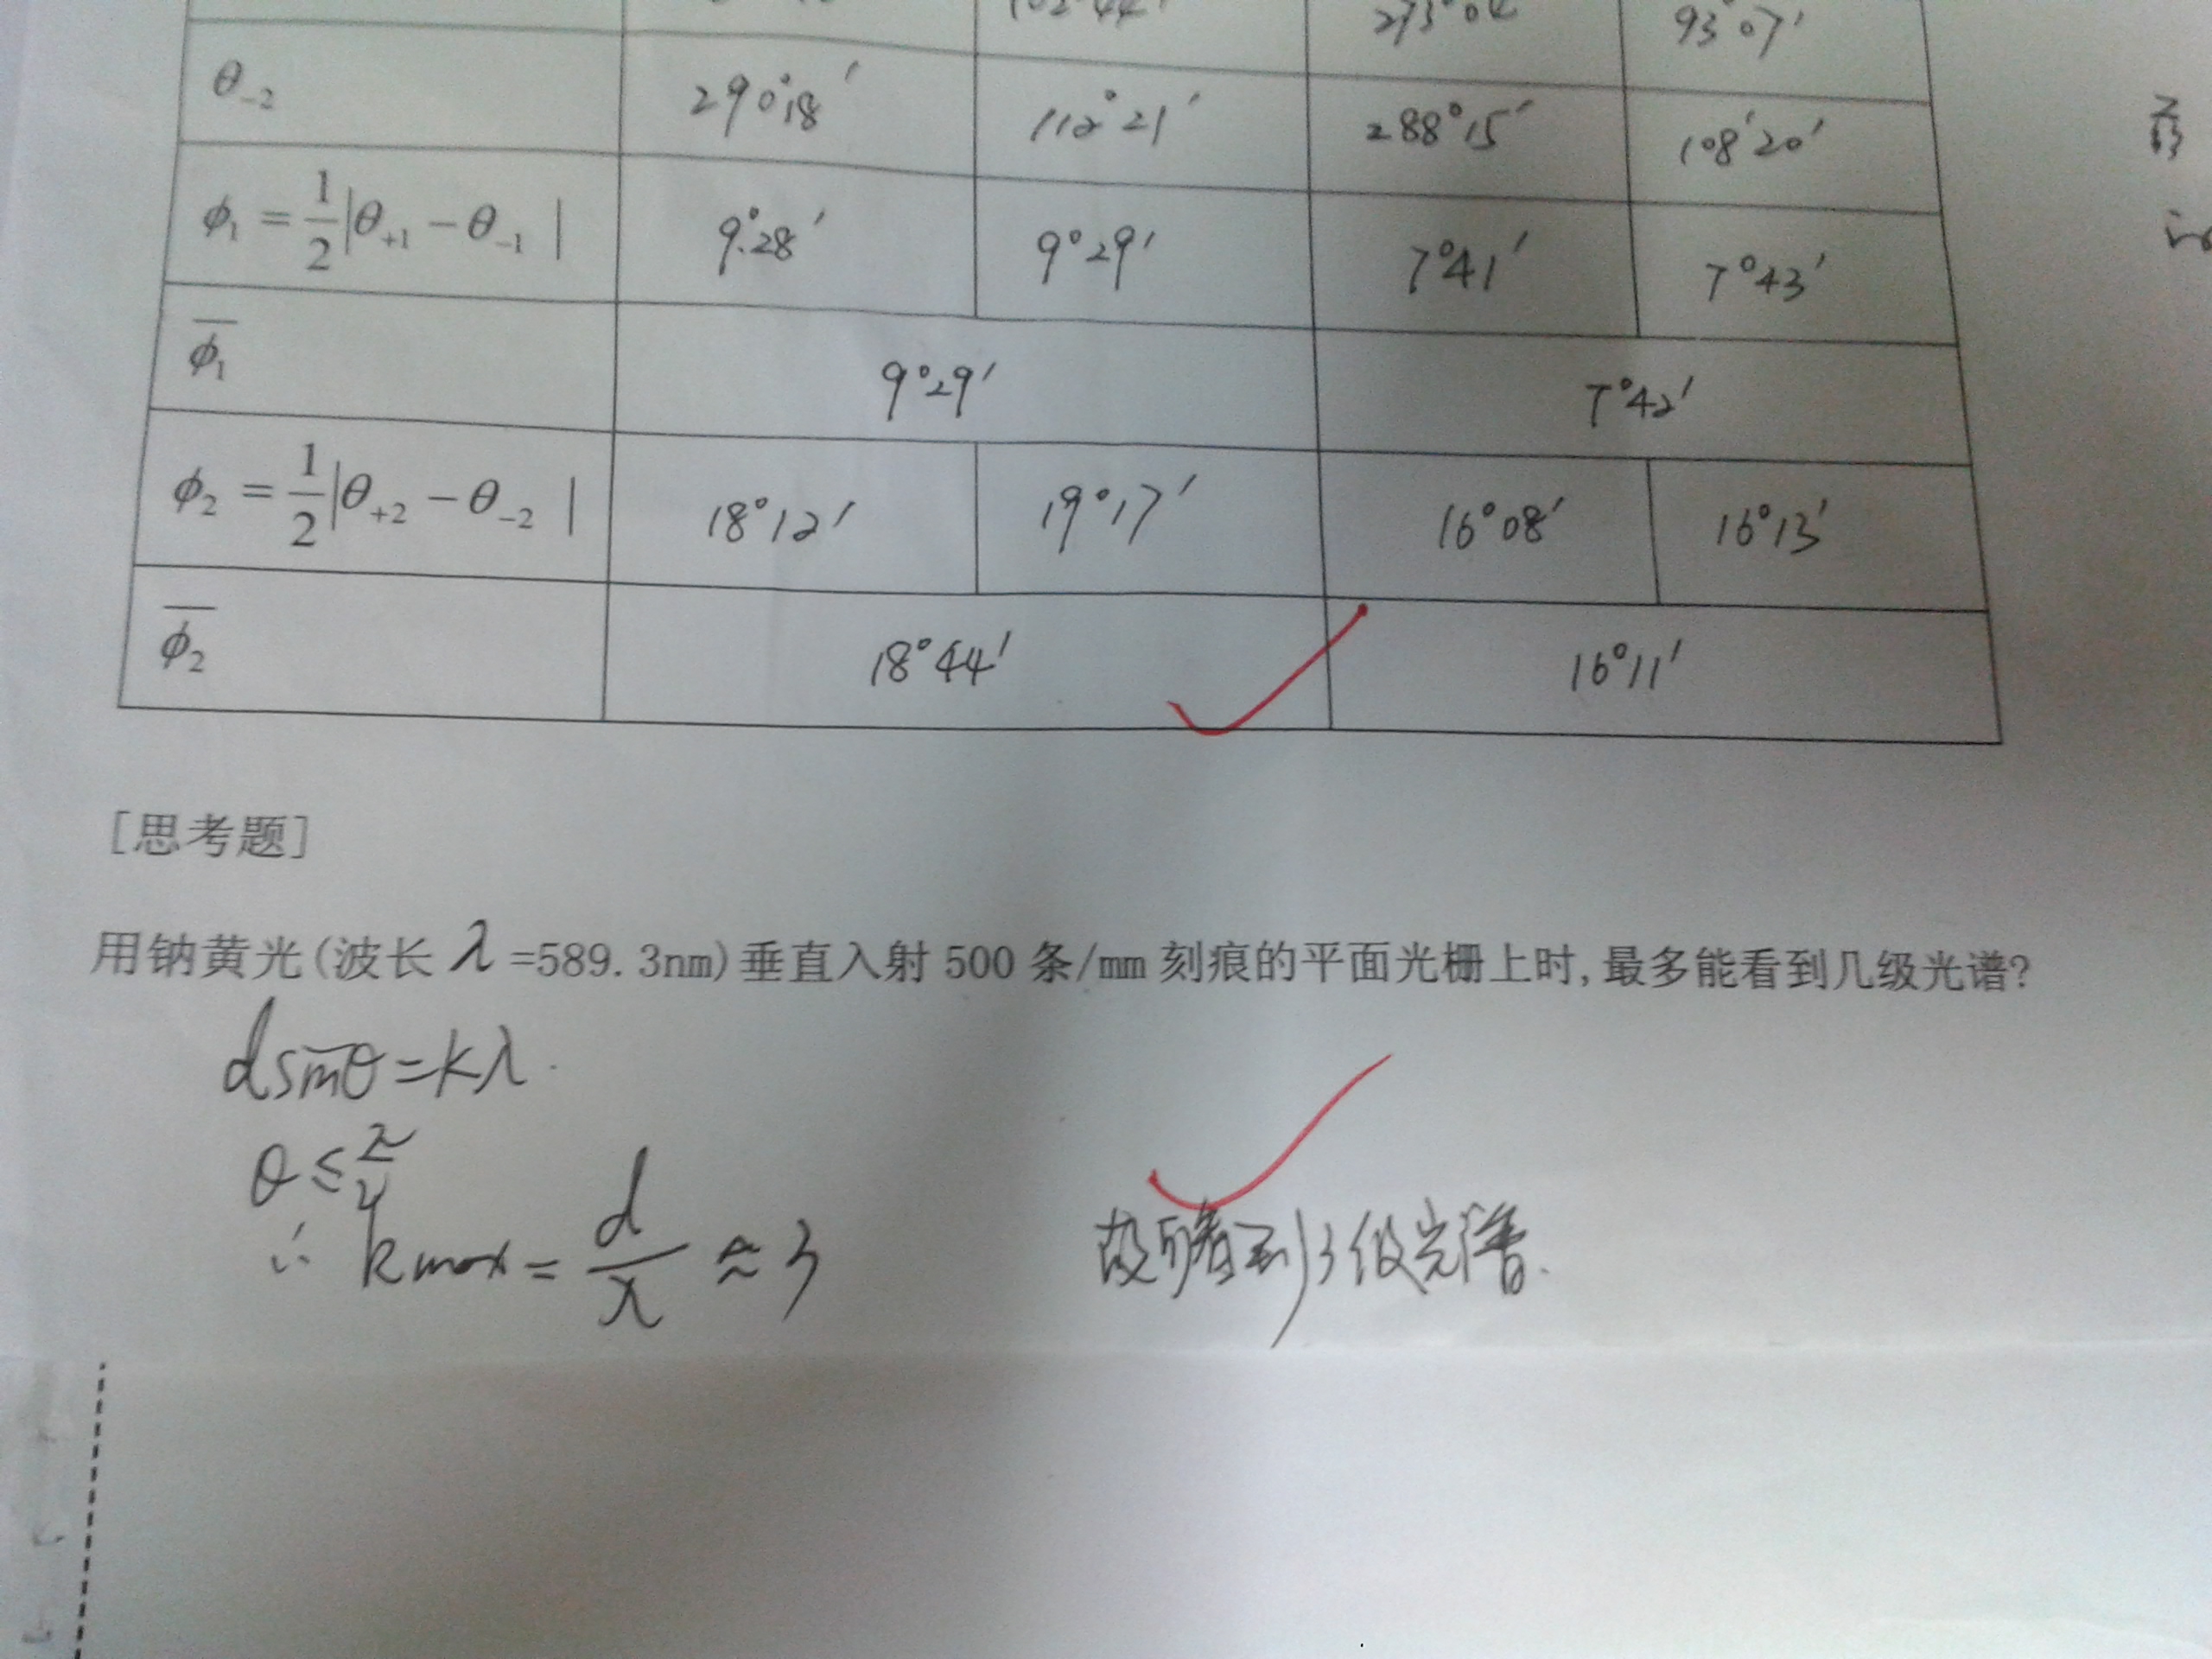 102°44′ 273°04′ 93°07′
θ₋₂ 290°18′ 112°21′ 288°15′ 108°20′
ϕ₁ = 1/2|θ₊₁ − θ₋₁| 9°28′ 9°29′ 7°41′ 7°43′
ϕ₁ 9°29′ 7°42′
ϕ₂ = 1/2|θ₊₂ − θ₋₂| 18°12′ 19°17′ 16°08′ 16°13′
ϕ₂ 18°44′ 16°11′
[思考题]
用钠黄光(波长 λ =589.3nm)垂直入射 500 条/mm 刻痕的平面光栅上时,最多能看到几级光谱?
dsinθ=kλ.
θ ≤
∴ kmax = d/λ ≈ 3 故可看到3级光谱.